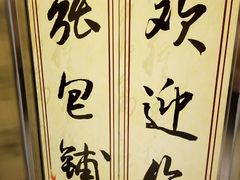 欢迎
张包铺